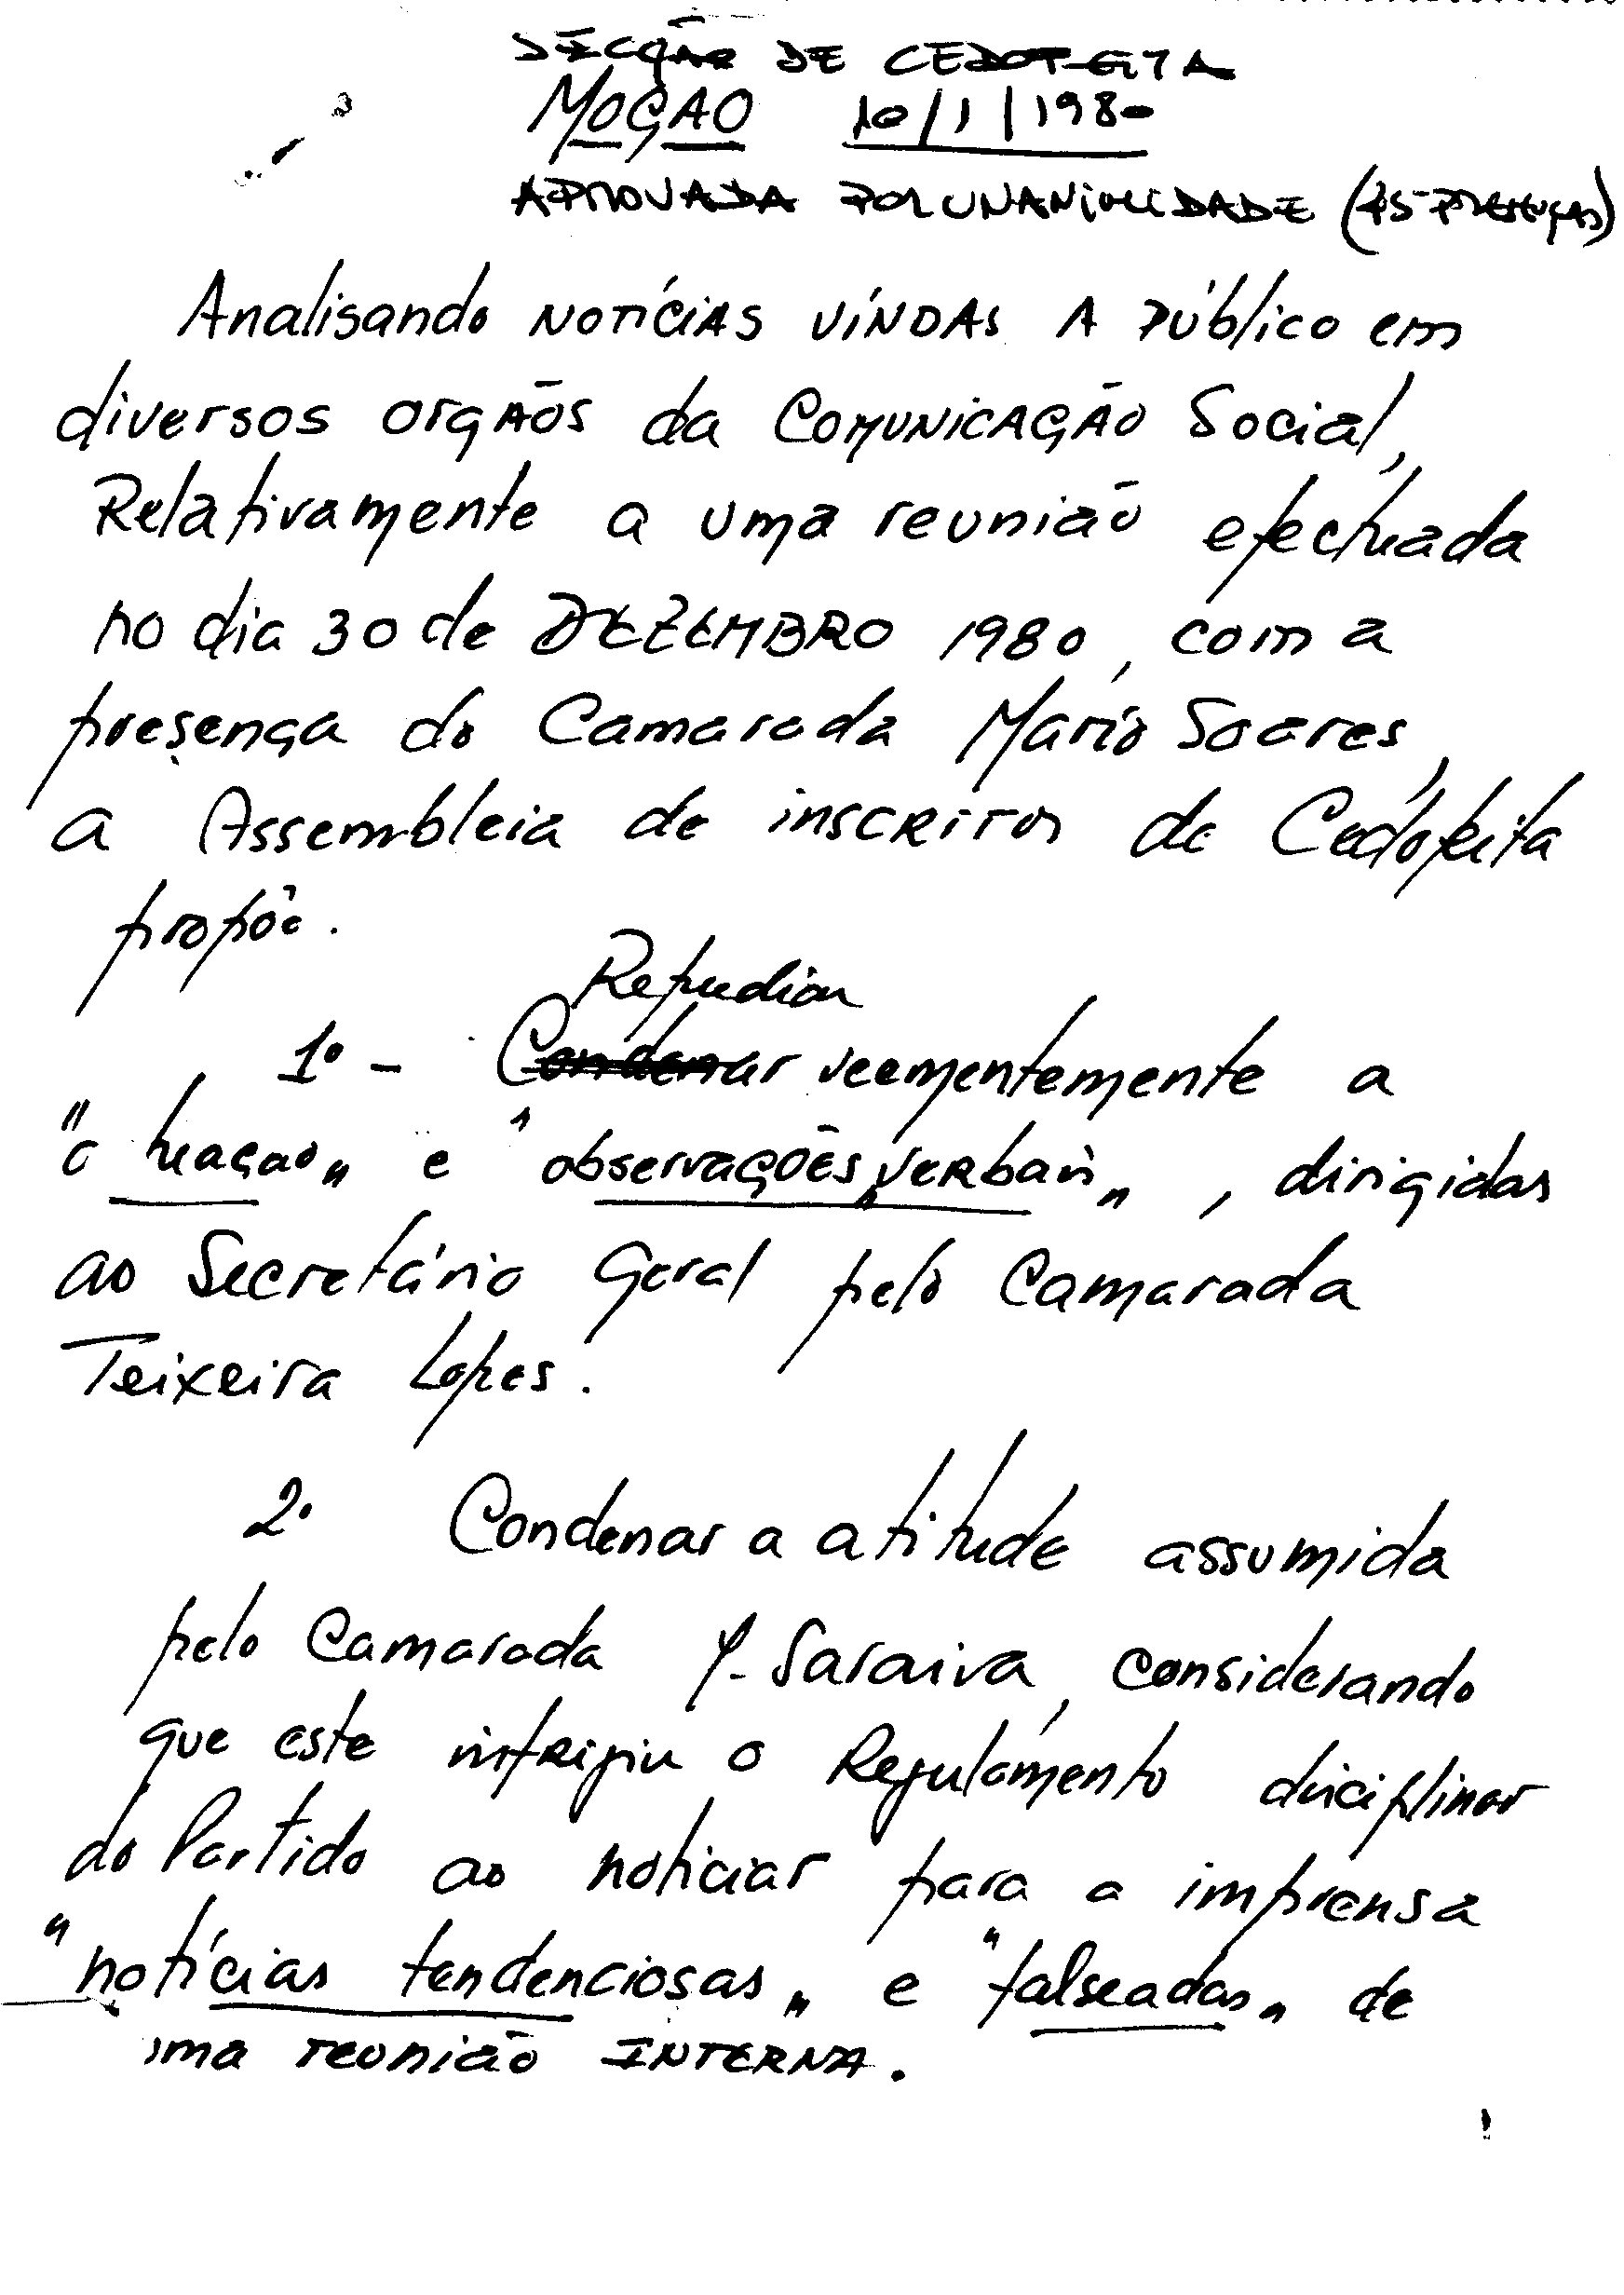 SECÇÃO DE CEDOFEITA
MOÇÃO 10/1/1980
APROVADA POR UNANIMIDADE (45 PRESENÇAS)
Analisando NOTÍCIAS VINDAS A PÚblico em
diversos orgãos da COMUNICAÇÃO Social,
Relativamente a uma reunião efectuada
no dia 30 de DEZEMBRO 1980, com a
presença do Camarada Mario Soares,
a Assembleia de inscritos de Cedofeita
propõe.
Repudiar
1º - Condenar veementemente a
"actuação" e "observações verbais", dirigidas
ao Secretário Geral pelo Camarada
Teixeira Lopes.
2º Condenar a atitude assumida
pelo Camarada Saraiva, considerando
que este infrigiu o Regulamento disciplinar
do Partido ao noticiar para a imprensa
"notícias tendenciosas" e "falseadas" de
uma reunião INTERNA.